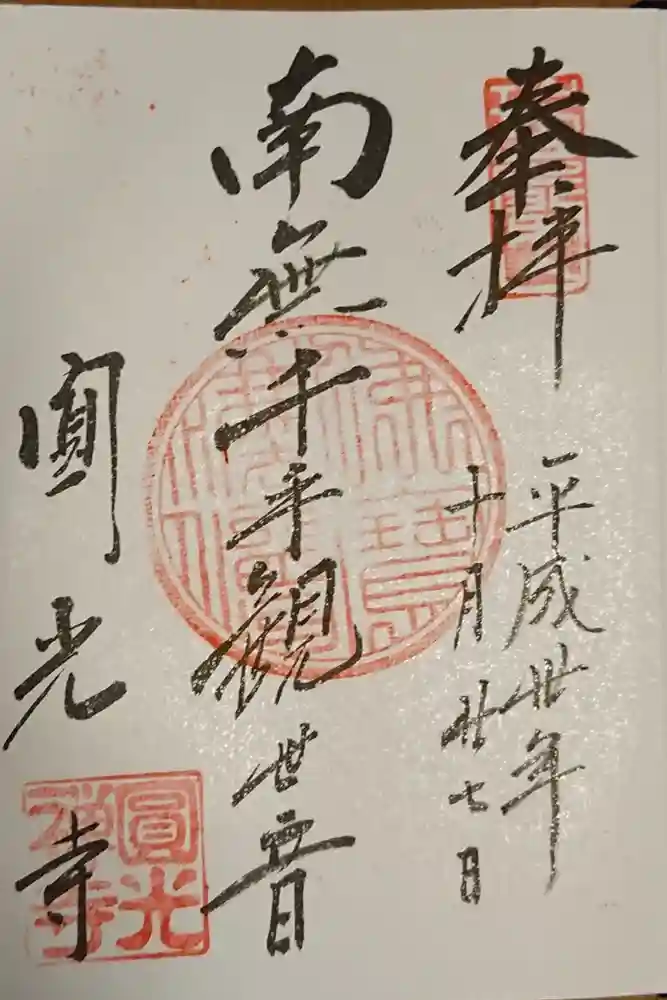 奉拝
平成卅年
十月廿七日
南無千手観世音
圓光寺
圓光
禅寺